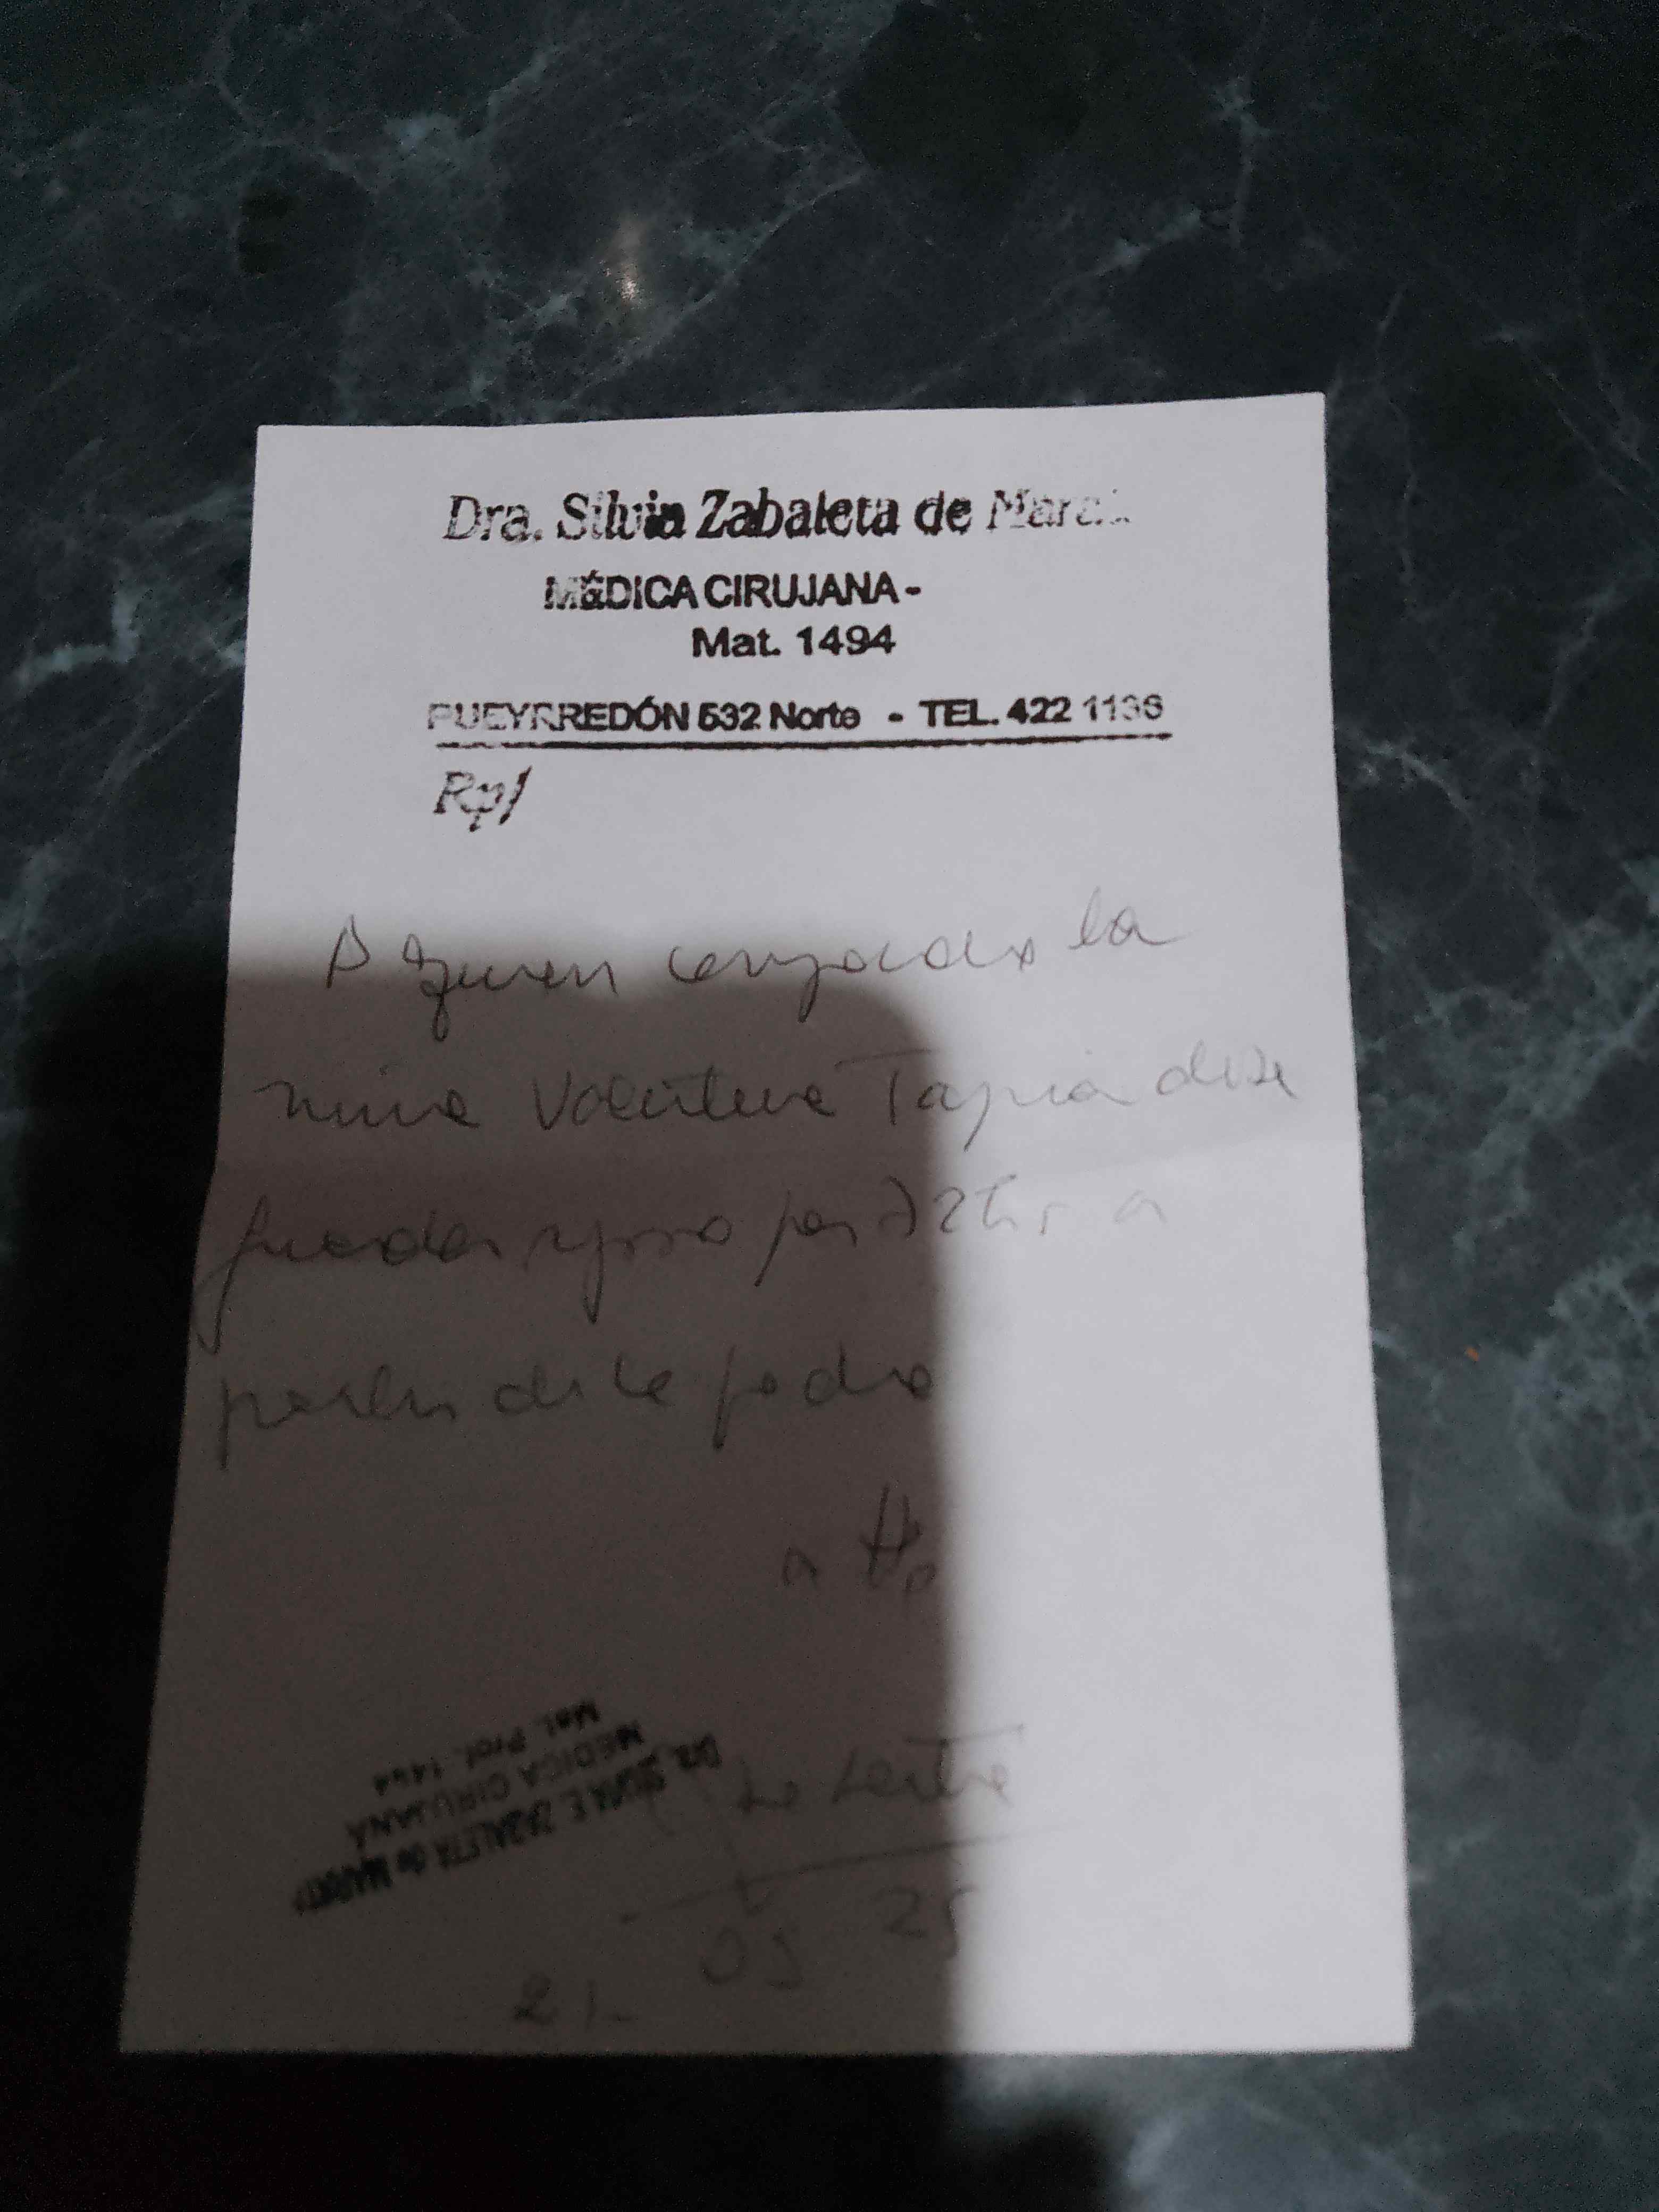 Dra. Silvia Zabaleta de
MÉDICA CIRUJANA -
Mat. 1494
PUEYRREDÓN 532 Norte - TEL. 422 1136
Rp/
A quien corresponda la
niña Valentina Tapia debe
guardar reposo por 72 hs a
partir de la fecha
DRA. SILVIA E. ZABALETA de
MEDICA CIRUJANA
Mat. Prof. 1494
05 25
21